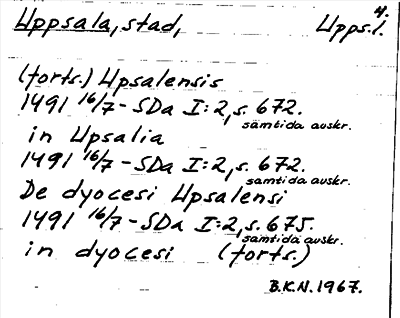 4.
Uppsala, stad, Upps.l.
(forts.) Upsalensis
1491 16/7 - SDa I:2, s. 672.
samtida avskr.
in Upsalia
1491 16/7 - SDa I:2, s. 672.
samtida avskr.
De dyocesi Upsalensi
1491 16/7 - SDa I:2, s. 675.
samtida avskr.
in dyocesi (forts.)
B.K.N. 1967.